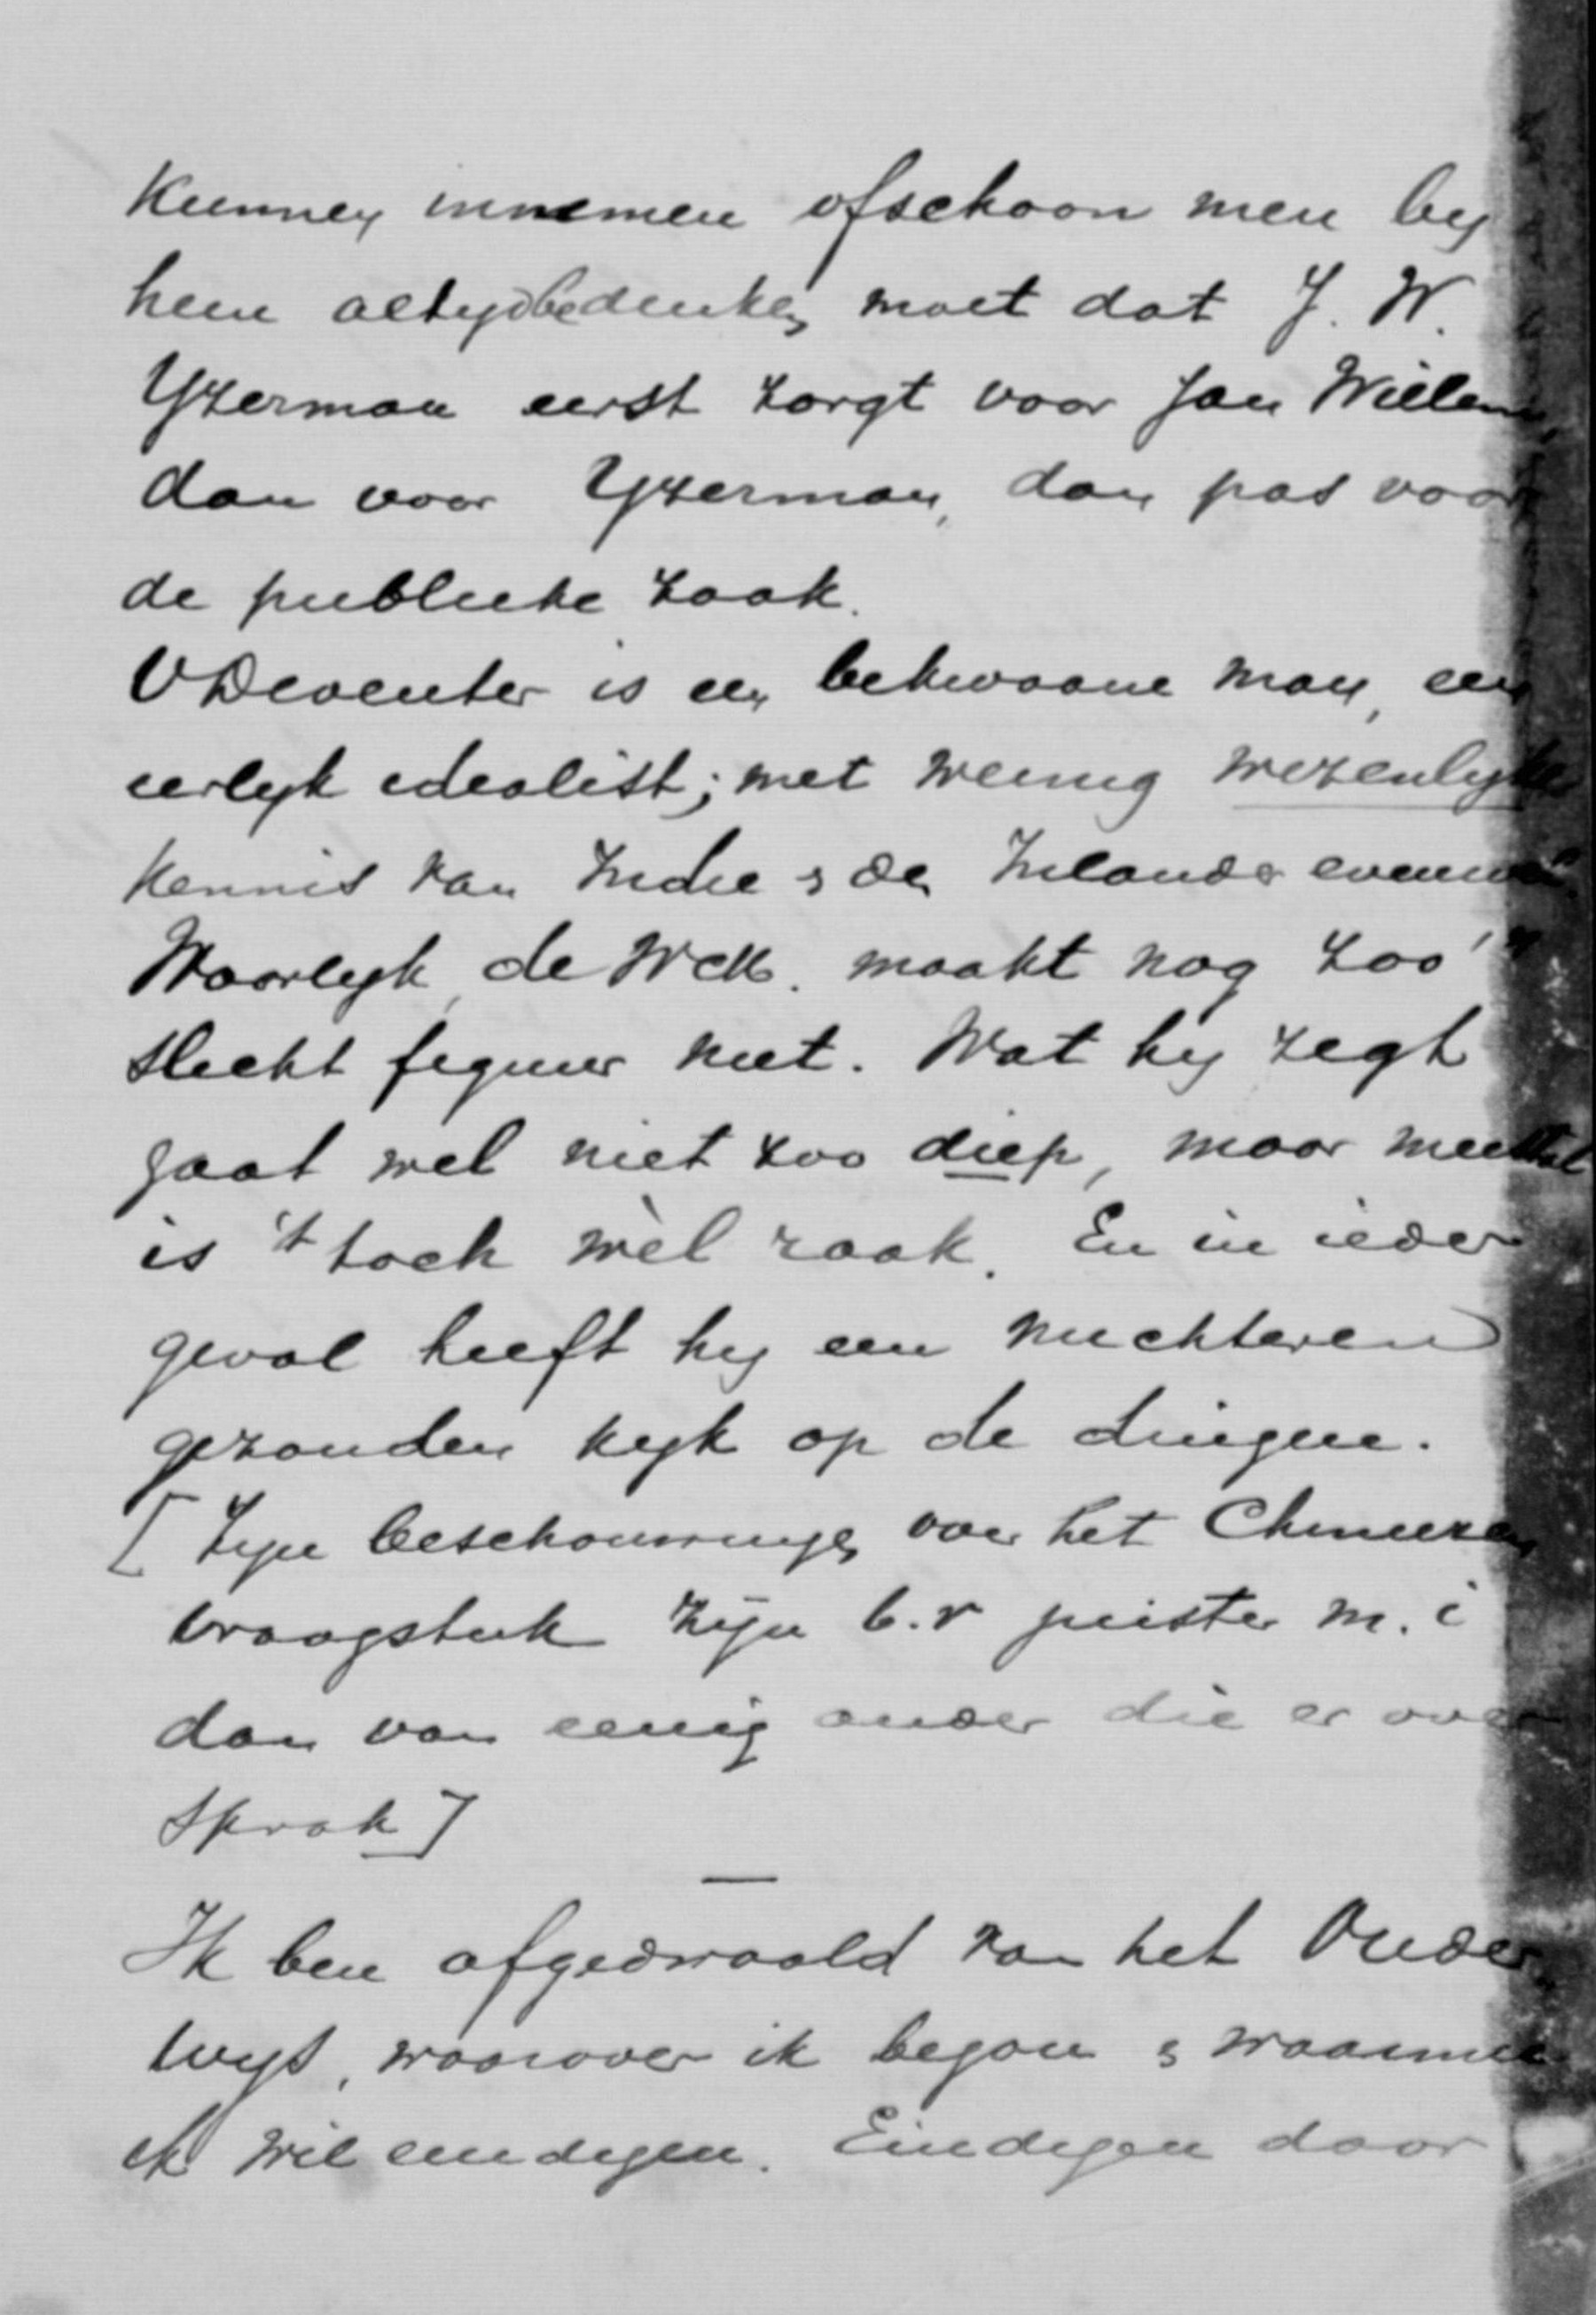 kunnen innemen ofschoon men by
hem altyd bedenken moet dat J. W.
Yzerman eerst zorgt voor Jan Willem,
dan voor Yzerman, dan pas voor
de publieke zaak.
V Deventer is een bekwaame man, een
eerlyk idealist; met weinig wezenlyke
kennis van Indie & den Inlander
Waarlyk, de Wck. maakt nog zoo'n
slecht figuur niet. Wat hy zegt
gaat wel niet zoo diep, maar meestal
is 't toch wèl raak. En in ieder
geval heeft hy een nuchteren
gezonden kyk op de dingen.
[Zyn beschouwingen over het Chineezen
vraagstuk zijn b.v juister m. i
dan van eenig ander die er over
sprak]
Ik ben afgedwaald van het Onder-
wys, waarover ik begon & waarmee
ik wil eindigen. Eindigen door